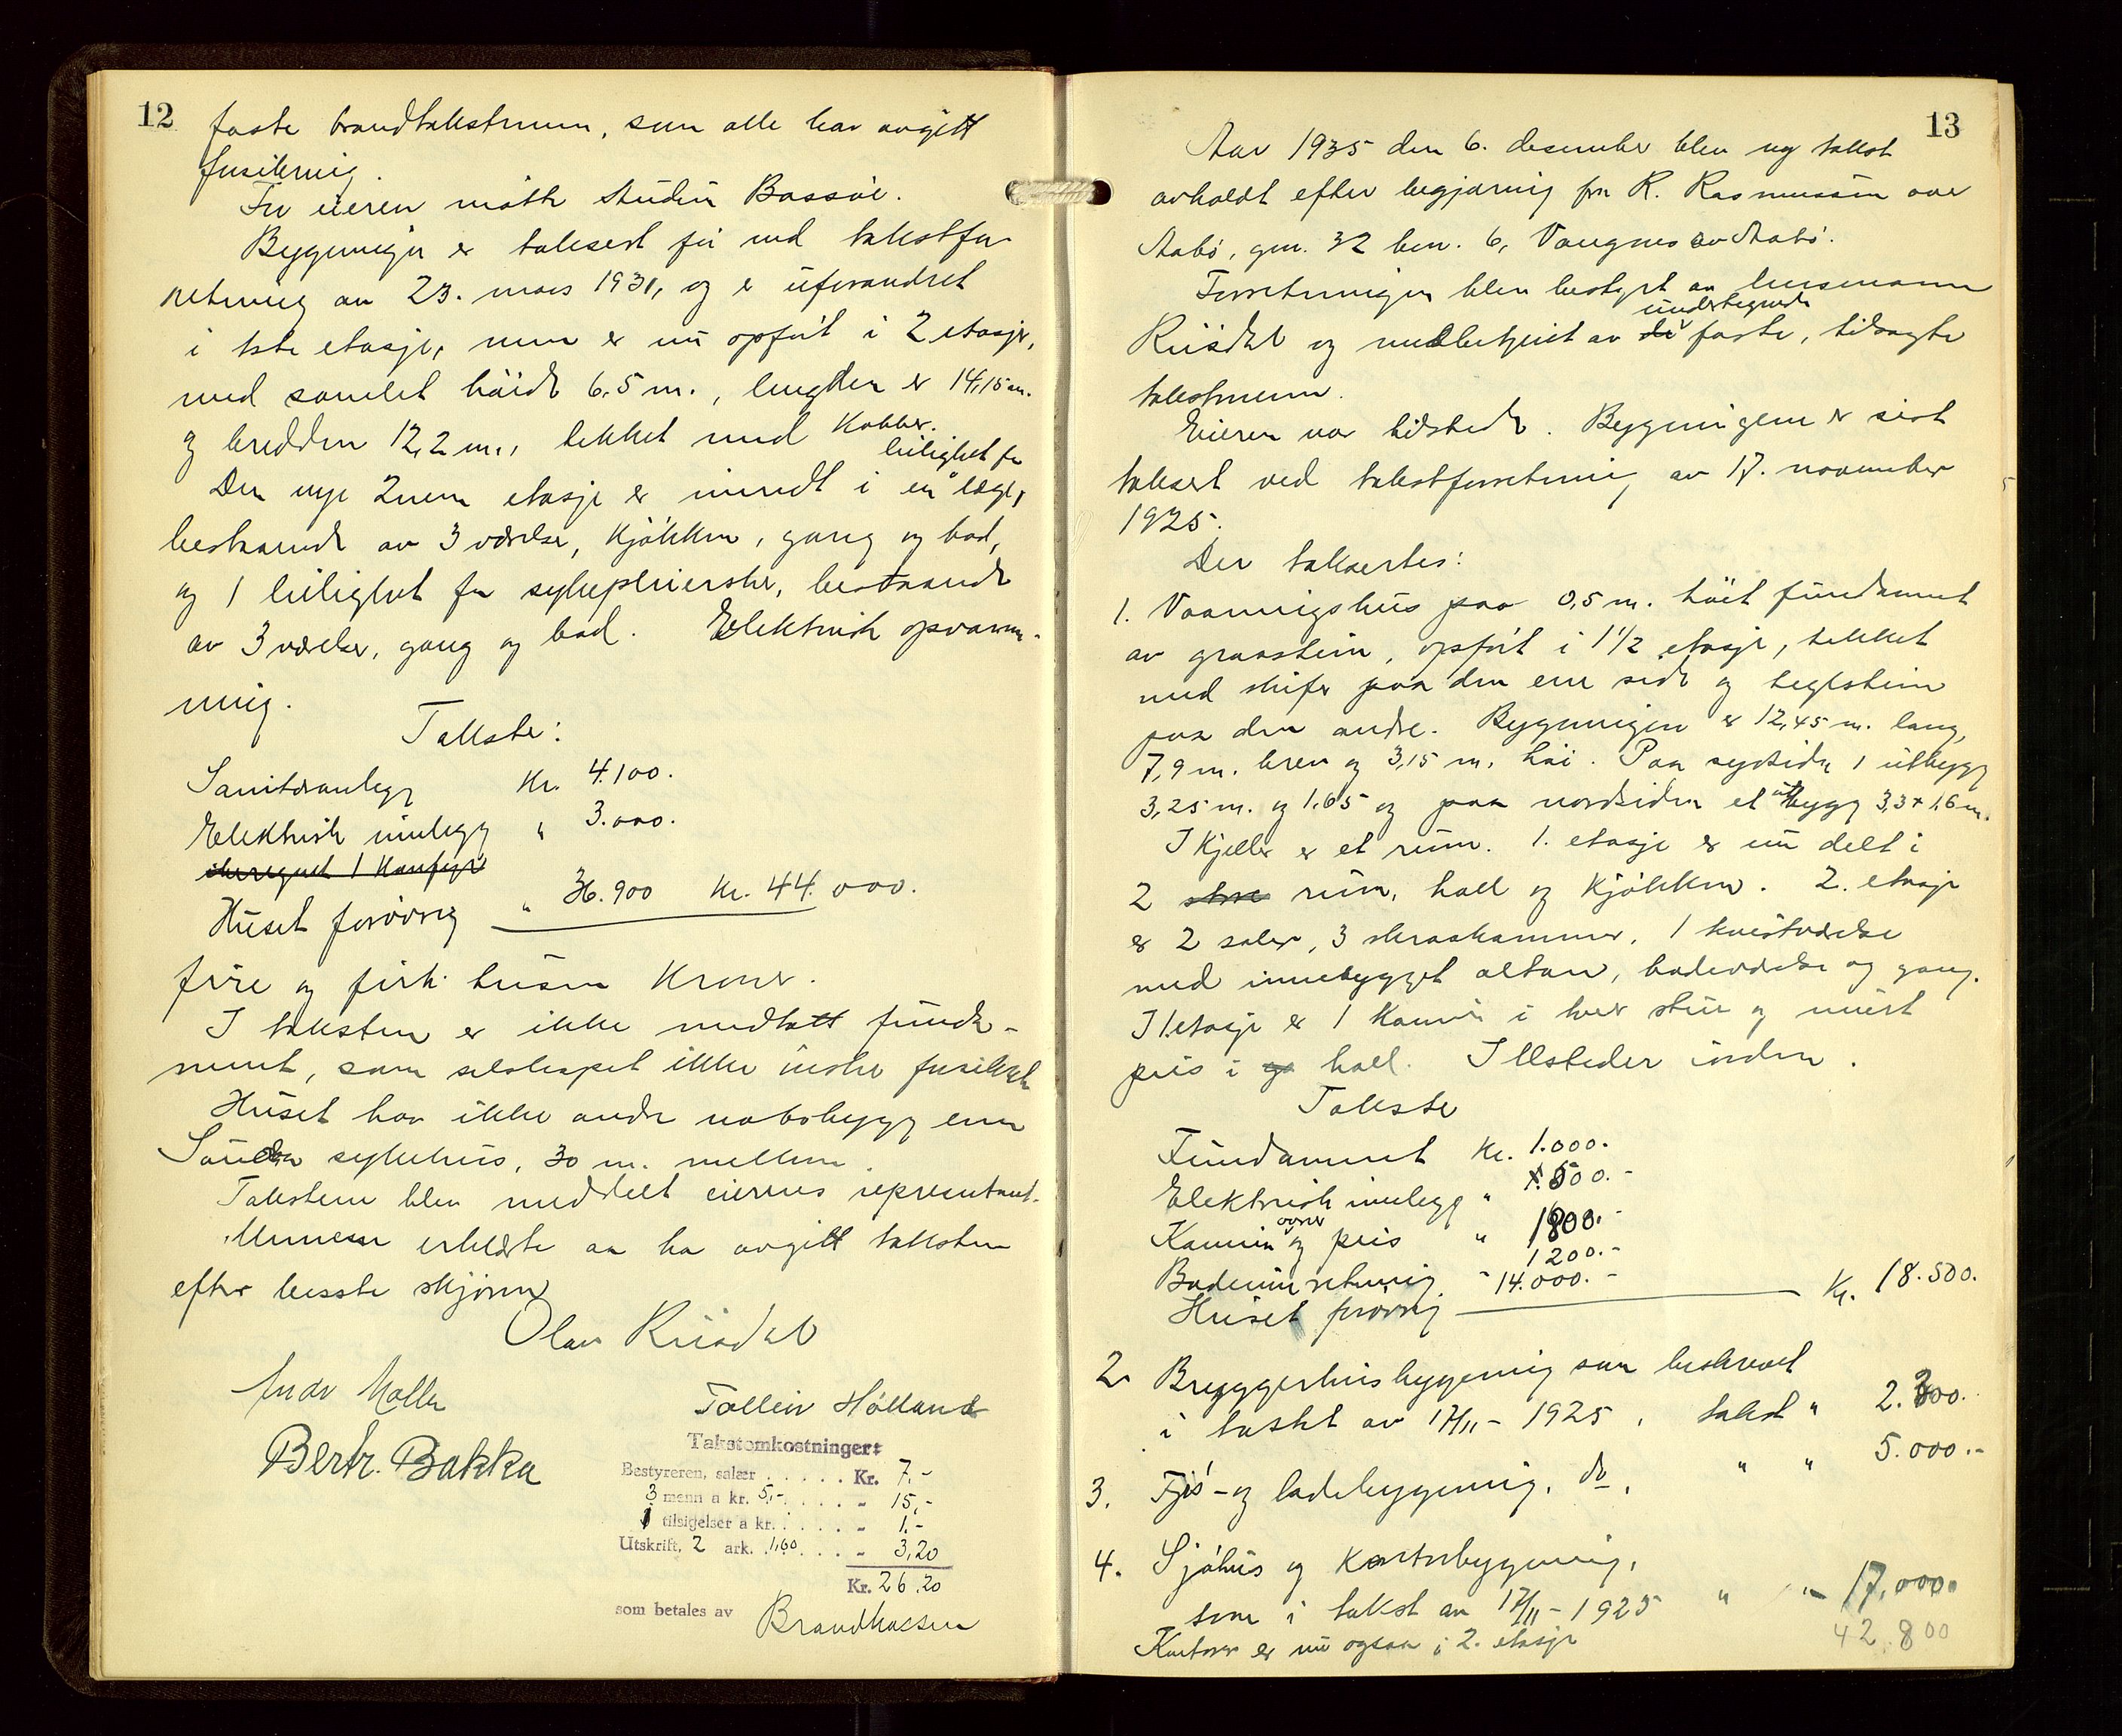 12
faste brandtakstmenn, som alle har avgitt
forsikring.
For eieren møtte studen Bassøe.
Bygningen er taksert før ved takstfor-
retning av 23. mars 1931, og er uforandret
i 1ste etasje, men er nu opført i 2 etasjer,
med samlet høide 6,5 m., lengden er 14,15 m.
og bredden 12,2 m., tekket med Kobber.
Den nye 2nen etasje er inredt i en leilighet for læge,
bestaaende av 3 værelser, kjøkken, gang og bad,
og 1 leilighet for sykepleierske, bestaaende
av 3 værelser, gang og bad. Elektrisk opvarm-
ning.
Takster:
Sanitæranlegg Kr. 4.100.
Elektrisk innlegg " 3.000.
iberegnet 1 Komfyr
Huset forøvrig " 36.900 Kr. 44.000.
firre og firti tusen Kroner.
I taksten er ikke medtatt funda-
ment, som selskapet ikke ønsker forsikret
Huset har ikke andre nabobygg enn
Sauda sykehus, 30 m. mellem.
Taksten blev meddelt eierens representant.
Mennene erklærte aa ha avgitt taksten
efter beste skjønn
Olav Riisdal
Andr Molle
Tollein Hølland
Bertr. Bakka
Takstomkostninger:
Bestyreren, salær . . . . . Kr. 7.-
3 menn a kr. 5,- . . . . " 15,-
1 tilsigelser a kr. . . . . . " 1.-
Utskrift, 2 ark. 1,60 . . . " 3,20
Kr. 26.20
som betales av Brandkassen
13
Aar 1935 den 6. desember blev ny takst
avholdt efter begjæring fra R. Rasmussen over
Aabø, gnr. 32 bnr. 6, Vangnes av Aabø.
Forretningen blev bestyrt av lensmann
Riisdal og medbetjent av de undertegnede faste, tilsagte
takstmenn.
Eieren var tilstede. Bygningene er sist
taksert ved takstforretning av 17. november
1925.
Der takseres:
1. Vaaningshus paa 0,5 m. høit fundament
av graastein, opført i 1 1/2 etasje, tekket
med skifer paa den ene side og teglstein
paa den andre. Bygningen er 12,45 m. lang,
7,9 m. brev og 3,15 m. høi. Paa sydsiden 1 utbygg
3,25 m. og 1.65 og paa nordsiden et utbygg 3,3 x 1,6 m.
I Kjeller er et rum. 1. etasje er nu delt i
2 store rum, hall og kjøkken. 2. etasje
er 2 saler, 3 skraakammer, 1 kvistværelse
med innebygget altan, badeværelse og gang.
I 1. etasje er 1 Kamin i hver stue og muret
peis i og hall. Ildsteder iorden.
Takster
Fundament Kr. 1.000.
Elektrisk innlegg " 500.-
Kamin ovner og peis " 1800.-
Badeinnretning 1200.-
Huset forøvrig - 14.000.- Kr. 18.500.
2. Bryggerhusbygning som beskrevet
i takst av 17/11 - 1925, takst " 2.300.
3. Fjøs- og ladebygning. do, " " 5.000.-
4. Sjøhus og kontorbygning,
som i takst av 17/11 - 1925 " " - 17.000.
42.800
Kontorer er nu ogsaa i 2. etasje